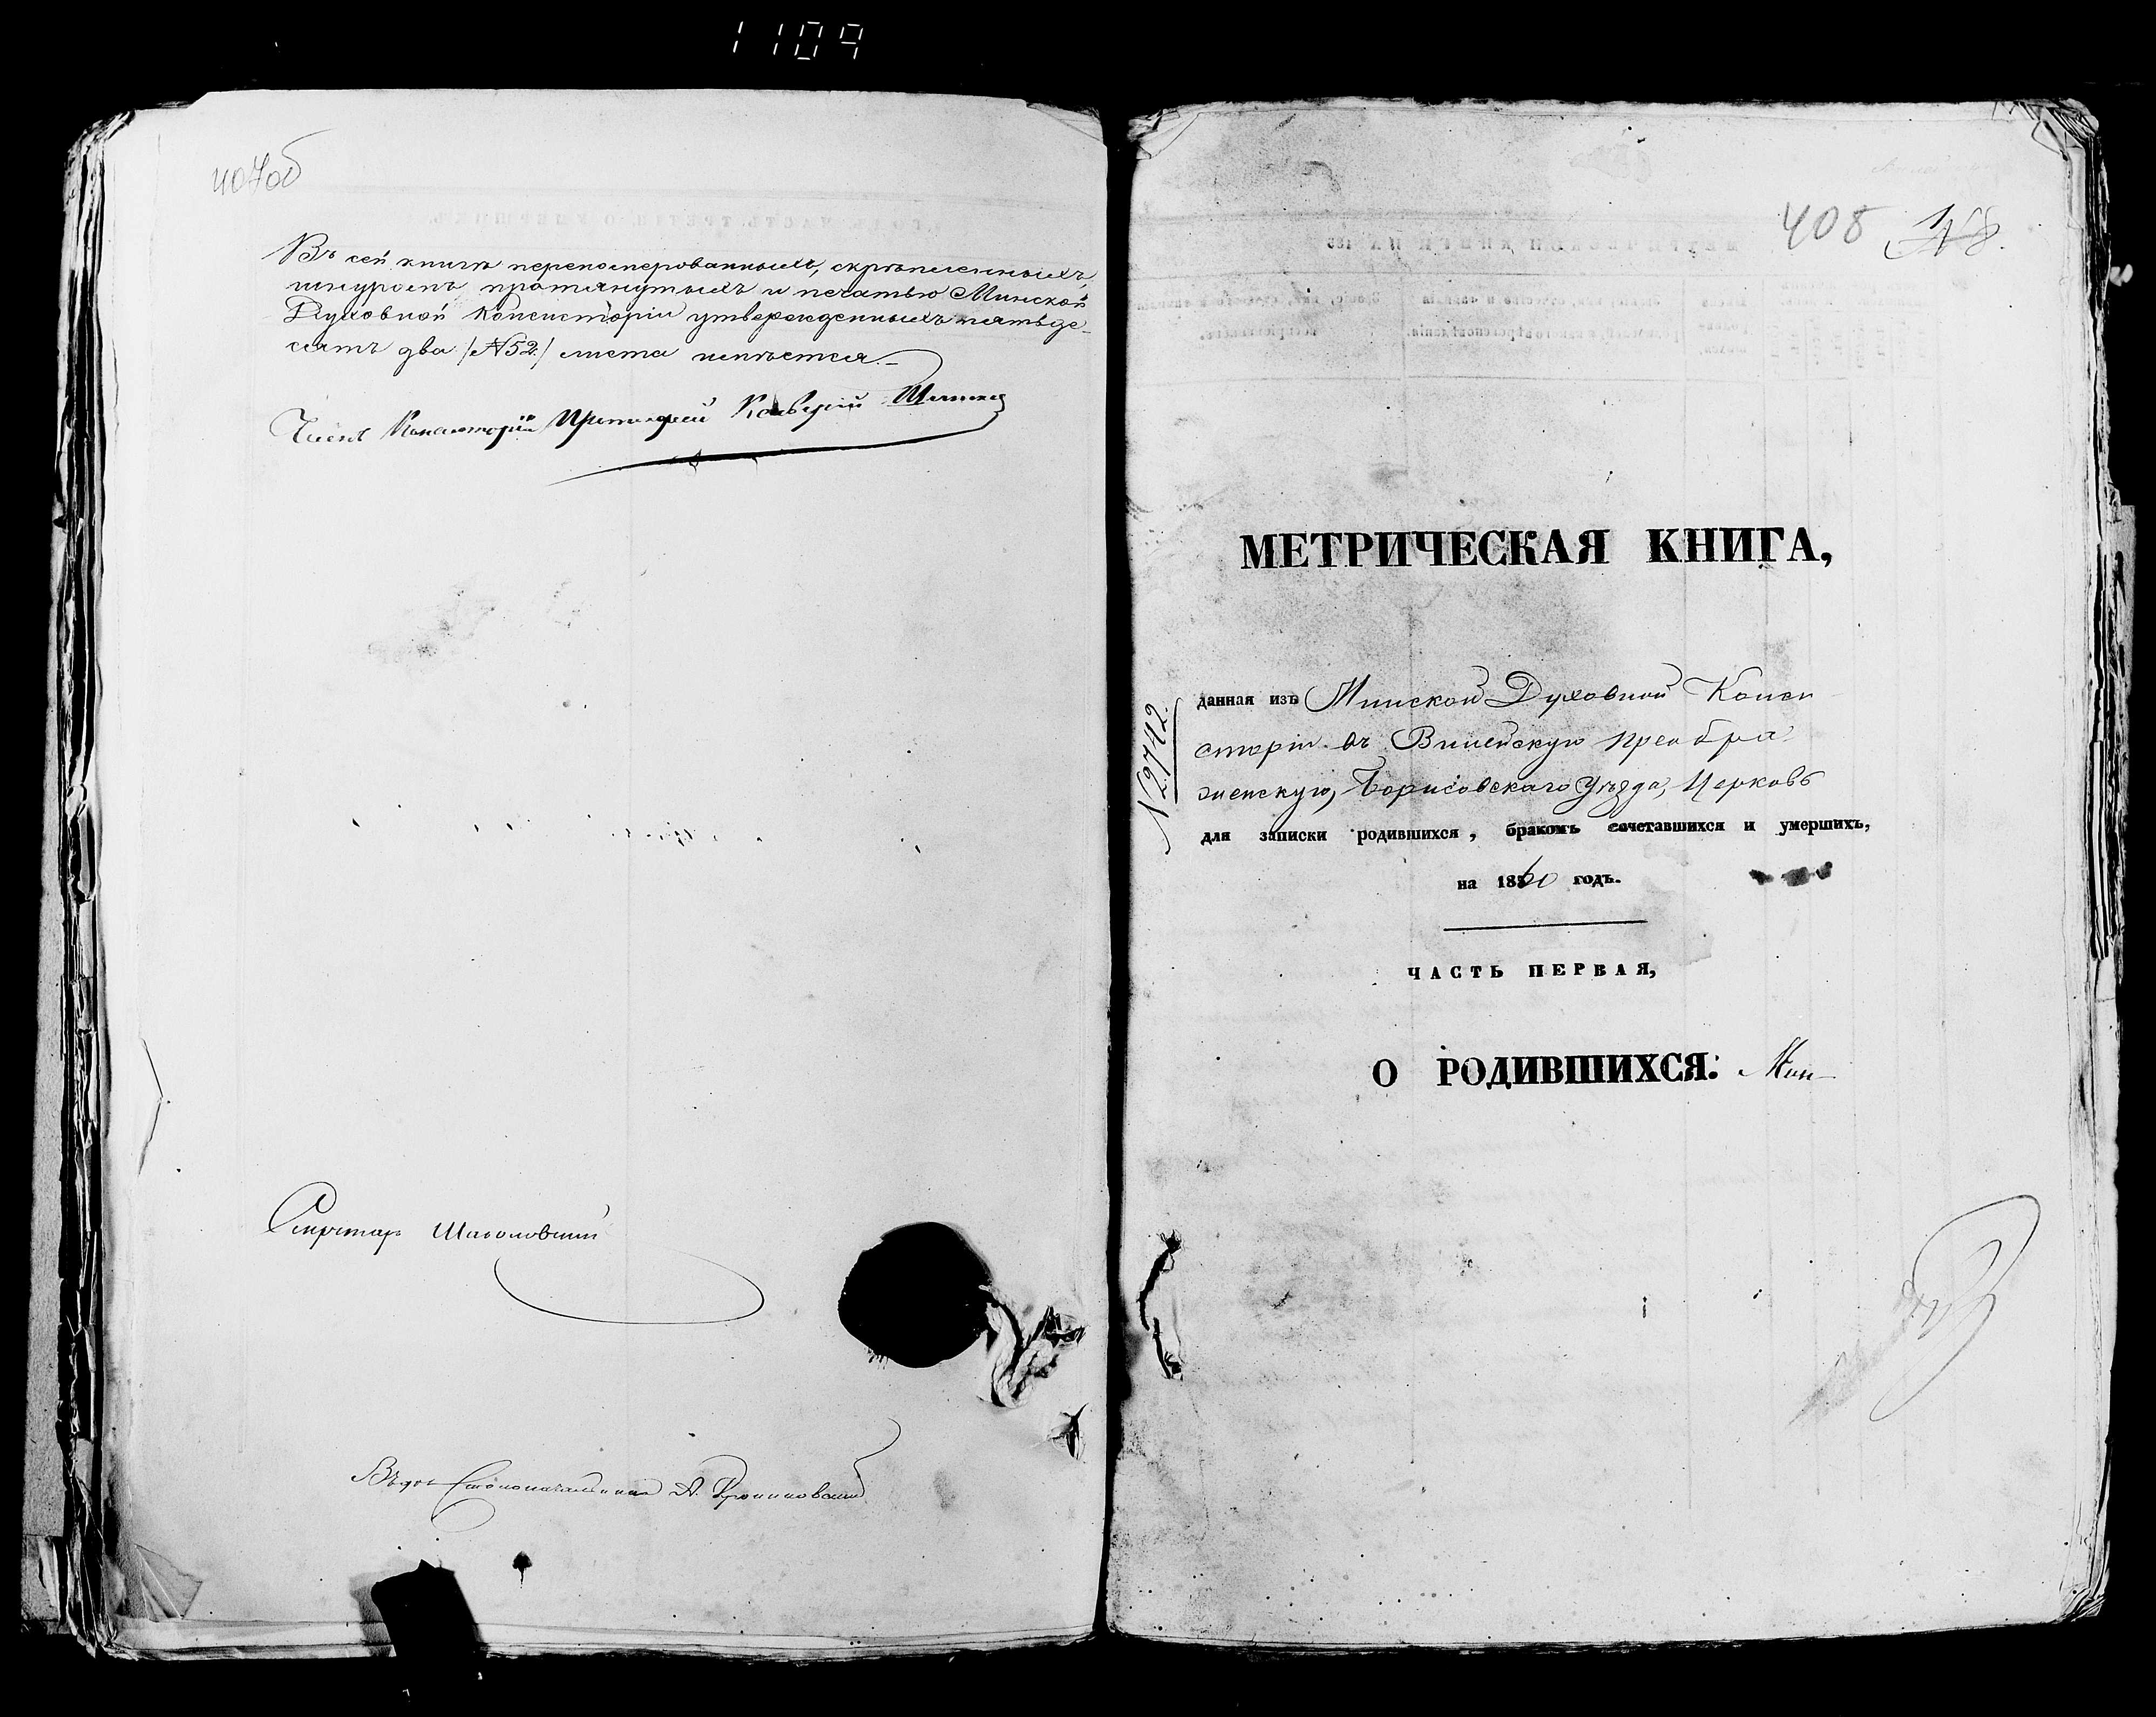 1109
407об
Въ сей книгѣ перенумерованныхъ, скрѣпленныхъ,
шнуромъ протянутыхъ и печатью Минской
Духовной Консисторіи утвержденныхъ пятьде-
сятъ два /№52/ листа имѣется.
Членъ Консисторіи Протоіерей
Секретарь
Столоначальникъ А.
408 №8.
МЕТРИЧЕСКАЯ КНИГА,
№2742.
данная изъ Минской Духовной Конси
сторіи въ Преобра
женскую, Борисовскаго Уѣзда, Церковь
для записки родившихся, бракомъ сочетавшихся и умершихъ,
на 1860 годъ.
ЧАСТЬ ПЕРВАЯ,
О РОДИВШИХСЯ: Мин-